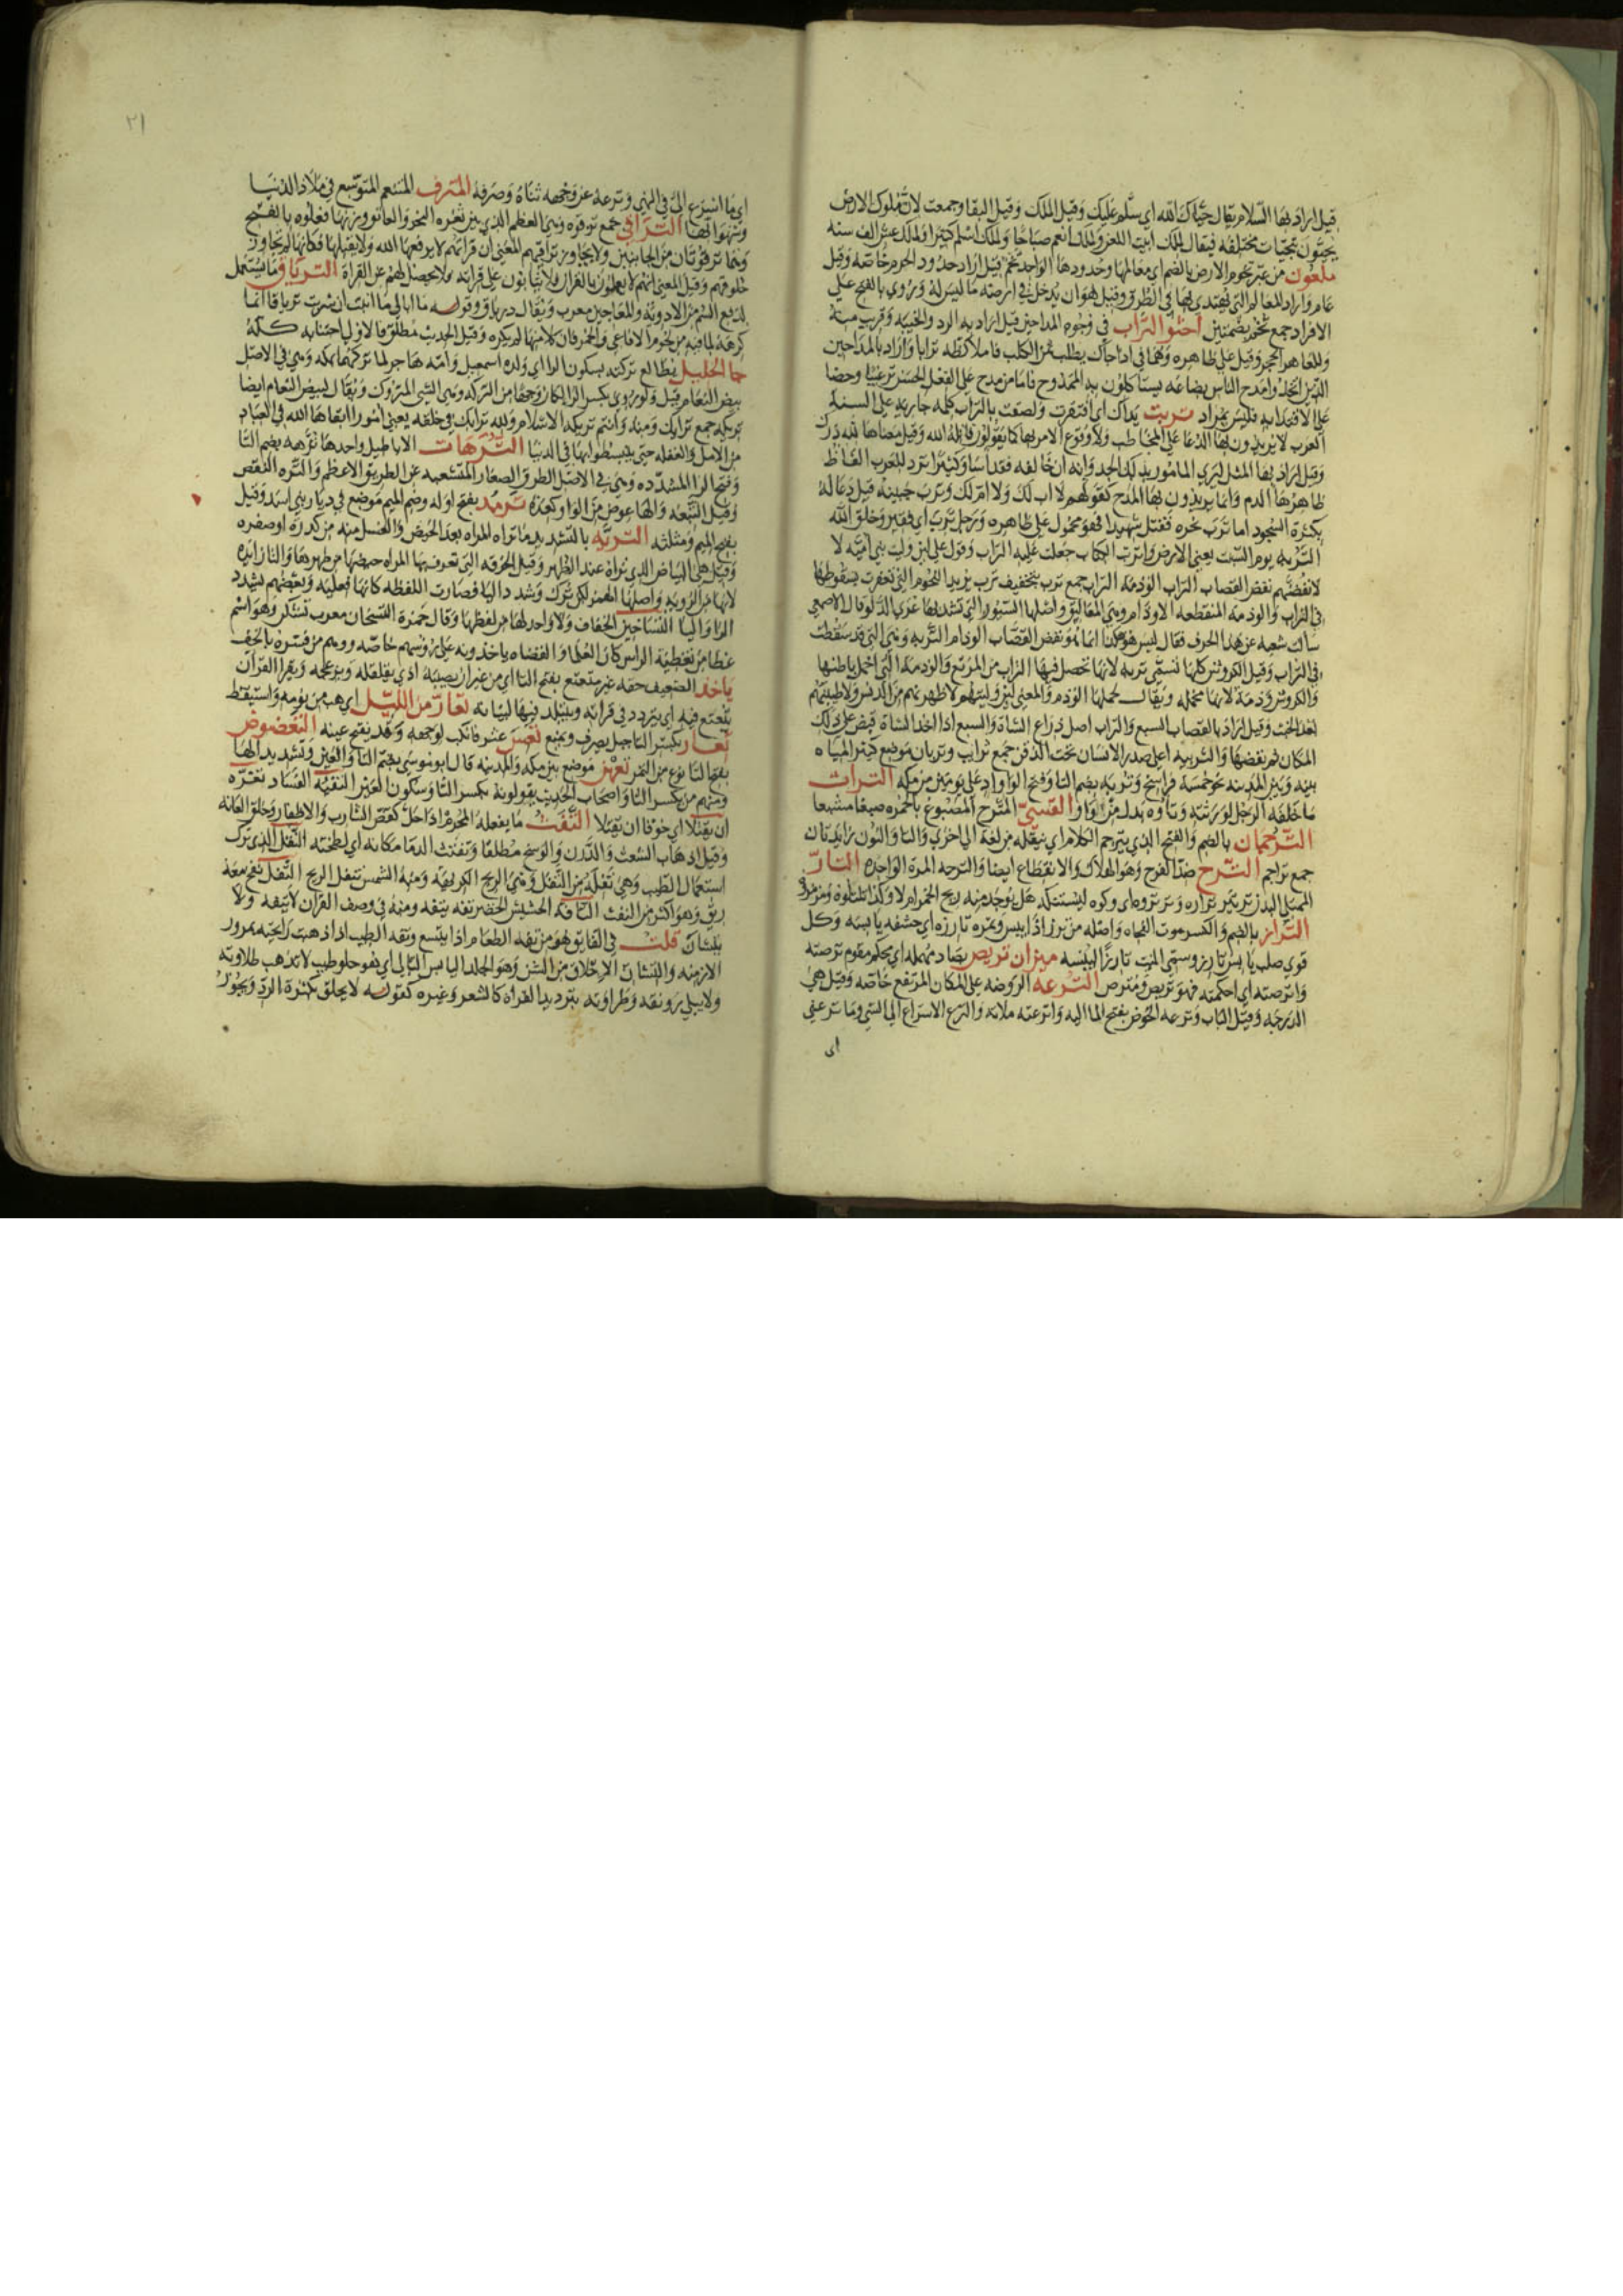 قيل اراد بها السلام يقال حياك الله اي سلم عليك وقيل الملك وقيل البقا وجمعت لان ملوك الارض
يحيون بتحيات مختلفه فيقال لملك ابيت اللعن ولملك انعم صباحا ولملك اسلم كثيرا ولملك عش الف سنه
ملعون من غير تخوم الارض بالضم اي معالمها وحدودها الواحد تخم قيل اراد حدود الحرم خاصه وقيل
عام واراد المعالم التي يهتدى بها في الطرق وقيل هو ان يدخل في ارضه ما ليس له ويروي بالفتح على
الافراد جمع تخم بضمتين احثوا التراب في وجوه المداحين قيل اراد به الرد والخيبه وقريب منه
وللعاهر الحجر وقيل على ظاهره وكما في اذا جاك يطلب ثمن الكلب فاملا كفه ترابا واراد بالمداحين
الذين اتخذوا مدح الناس بضاعه يستاكلون به الممدوح فاما من مدح على الفعل الحسن ترغيبا وحضا
على الاقتدا به فليس بمراد تربت يداك اي افتقرت ولصقت بالتراب كلمه جاريه على السنه
العرب لا يريدون بها الدعا على المخاطب ولا وقوع الامر بها كما يقولون قاتله الله وقيل معناها لله درك
وقيل اراد بها المثل ليري المامور بذلك الجد وانه ان خالفه فقد اسا وكثيرا ترد للعرب الفاظ
ظاهرها الذم وانما يريدون بها المدح كقولهم لا اب لك ولا ام لك وترب جبينه قيل دعا له
بكثرة السجود اما ترب نحره فقتل شهيدا فهو محمول على ظاهره ورجل ترب اي فقير وخلق الله
التربه يوم السبت يعني الارض واتربت الكتاب جعلت عليه التراب وقول علي لين وليت بني اميه لا
لانفضنهم نفض القصاب التراب الوذمه التراب جمع ترب بتخفيف ترب يريد اللحوم التي تعفرت بسقوطها
في التراب والوذمه المنقطعه الاوذام وهي المعاليق واصلها السيور التي تشد بها عرى الدلو قال الاصمعي
سالت شعبه عن هذا الحرف فقال ليس هو هكذا انما هو نفض القصاب الوذام التربه وهي التي قد سقطت
في التراب وقيل الكروش كلها تسمى تربه لانها تحصل فيها التراب من المرتع والوذمه التي اخمل باطنها
والكروش وذمة لانها مخمله ويقال لخملها الوذم والمعنى لين وليتهم لاطهرنهم من الدنس ولاطيبنهم
بعد الخبث وقيل اراد بالقصاب السبع والتراب اصل ذراع الشاة والسبع اذا اخذ الشاة قبض على ذلك
المكان ثم نفضها والتريبه اعلى صدر الانسان تحت الذقن جمع ترايب وتربان موضع كثير المياه
بينه وبين المدينه نحو خمسة فراسخ وتربه بضم التا وفتح الرا واد على يومين من مكه التراث
ما خلفه الرجل لورثته وتاؤه بدل من واو القسي المترج المصبوغ بالحمره صبغا مشبعا
الترجمان بالضم والفتح الذي يترجم الكلام اي ينقله من لغة الي اخرى والتا والنون زايدتان
جمع تراجم الترح ضد الفرح وهو الهلاك والانقطاع ايضا والترحه المرة الواحده التار
التراز بالضم والكسر موت الفجاه واصله من ترز اذا يبس وتمره تارزه اي حشفه يابسه وكل
قوي صلب يابس تارز وسمي الميت تارزا ليبسه ميزان تريص بصاد مهمله اي محكم مقوم ترصته
واترصته اي احكمته فهو تريص ومترص الترعه الروضه على المكان المرتفع خاصه وقيل هي
الدرجه وقيل الباب وترعه الحوض بفتح الما اليه واترعته ملاته والترع الاسراع الي الشي وما ترعني
اى
٢١
اي ما اسرع الي في النهي وترعه عن وجهه ثناه وصرفه المترف المتنعم المتوسع في ملاذ الدنيا
وشهواتها التراقي جمع ترقوه وهي العظم الذي بين ثغره النحر والعاتق وزنها فعلوه بالفتح
وهما ترقوتان من الجانبين ولا يجاوز تراقيهم المعنى ان قراتهم لا يرفعها الله ولا يقبلها فكانها لم تجاوز
حلوقهم وقيل المعنى انهم لا يعملون بالقران ولا يثابون على قراته ولا يحصل لهم غير القراة الترياق ما يستعمل
لدفع السم من الادويه والمعاجين معرب ويقال درياق وقوله ما ابالي ما اتيت ان شربت ترياقا انما
كرهه لما فيه من لحوم الافاعي والخمر فان كلا منها لم يكره وقيل الحديث مطلق فالاولى اجتنابه كله
جا الخليل يطالع تركته بسكون الرا اي ولده اسمعيل وامه هاجر لما تركهما بمكه وهي في الاصل
بيض النعام قيل ولو روي بكسر الرا لكان وجها من التركه وهي الشي المتروك ويقال لبيض النعام ايضا
تريكه جمع ترايك ومنه وانتم تريكه الاسلام ولله ترايك في خلقه يعني امورا ابقاها الله في العباد
من الامل والغفله حتى ينبسطوا بها في الدنيا الترهات الاباطيل واحدها ترهه بضم التا
وفتح الرا المشدده وهي في الاصل الطرق الصغار المتشعبه عن الطريق الاعظم والتره النقص
وقيل التبعه والها عوض من الواو كعدة ترمد بفتح اوله وضم الميم موضع في ديار بني اسد وقيل
بفتح الميم ومثلثه التريه بالتشديد ما تراه المراه بعد الحيض والغسل منه من كدرة او صفره
وقيل هي البياض الذي تراه عند الطهر وقيل الخرقه التي تعرف بها المراه حيضها من طهرها والتا زايده
لانها من الرويه واصلها الهمز لكن ترك وشددا اليا فصارت اللفظه كانها فعليه وبعضهم يشدد
الرا واليا التساخين الخفاف ولا واحد لها من لفظها وقال حمزة التسخان معرب تشكن وهو اسم
غطا من تغطية الراس كان العلما والقضاه ياخذونه على رؤسهم خاصه ووهم من فسره بالخف
ياخذ الضعيف حقه غير متعتع بفتح التا اي من غير ان يصيبه اذى يقلقله ويزعجه ويقرا القران
يتعتع فيه اي يتردد في قراته ويتبلد فيها لسانه تعار من الليل اي هب من نومه واستيقظ
تعار بكسر التا جبل يصرف ويمنع تعس عثر فانكب لوجهه وقد يفتح عينه التعضوض
بفتح التا نوع من التمر تعهن موضع بين مكه والمدينه قال ابو موسى بضم التا والعين وتشديد الها
ومنهم من يكسر التا واصحاب الحديث يقولونه بكسر التا وسكون العين التغبة الفساد تغرة
ان يقتلا اي خوفا ان يقتلا التفث ما يفعله المحرم اذا حل كقص الشارب والاظفار وحلق العانه
وقيل اذهاب الشعث والدرن والوسخ مطلقا وتفثت الدما مكانه اي لطخته التفل الذي ترك
استعمال الطيب وهي تفله من التفل وهي الريح الكريهه ومنه الشمس تتفل الريح التفل نفخ معه
ريق وهو اكثر من النفث التافه الحقير تفه يتفه ومنه في وصف القران لا يتفه ولا
يتشان قلت في الفايق هو من تفه الطعام اذا يتسع وتفه الطيب اذا ذهبت رايحته بمرور
الازمنه والتشان الاخلاق من الشن وهو الجلد اليابس البالي اي هو حلو طيب لا تذهب طلاوته
ولا يبلى رونقه وطراوته بترديد القراة كالشعر وغيره كقوله لا يخلق بكثرة الرد ويجوز